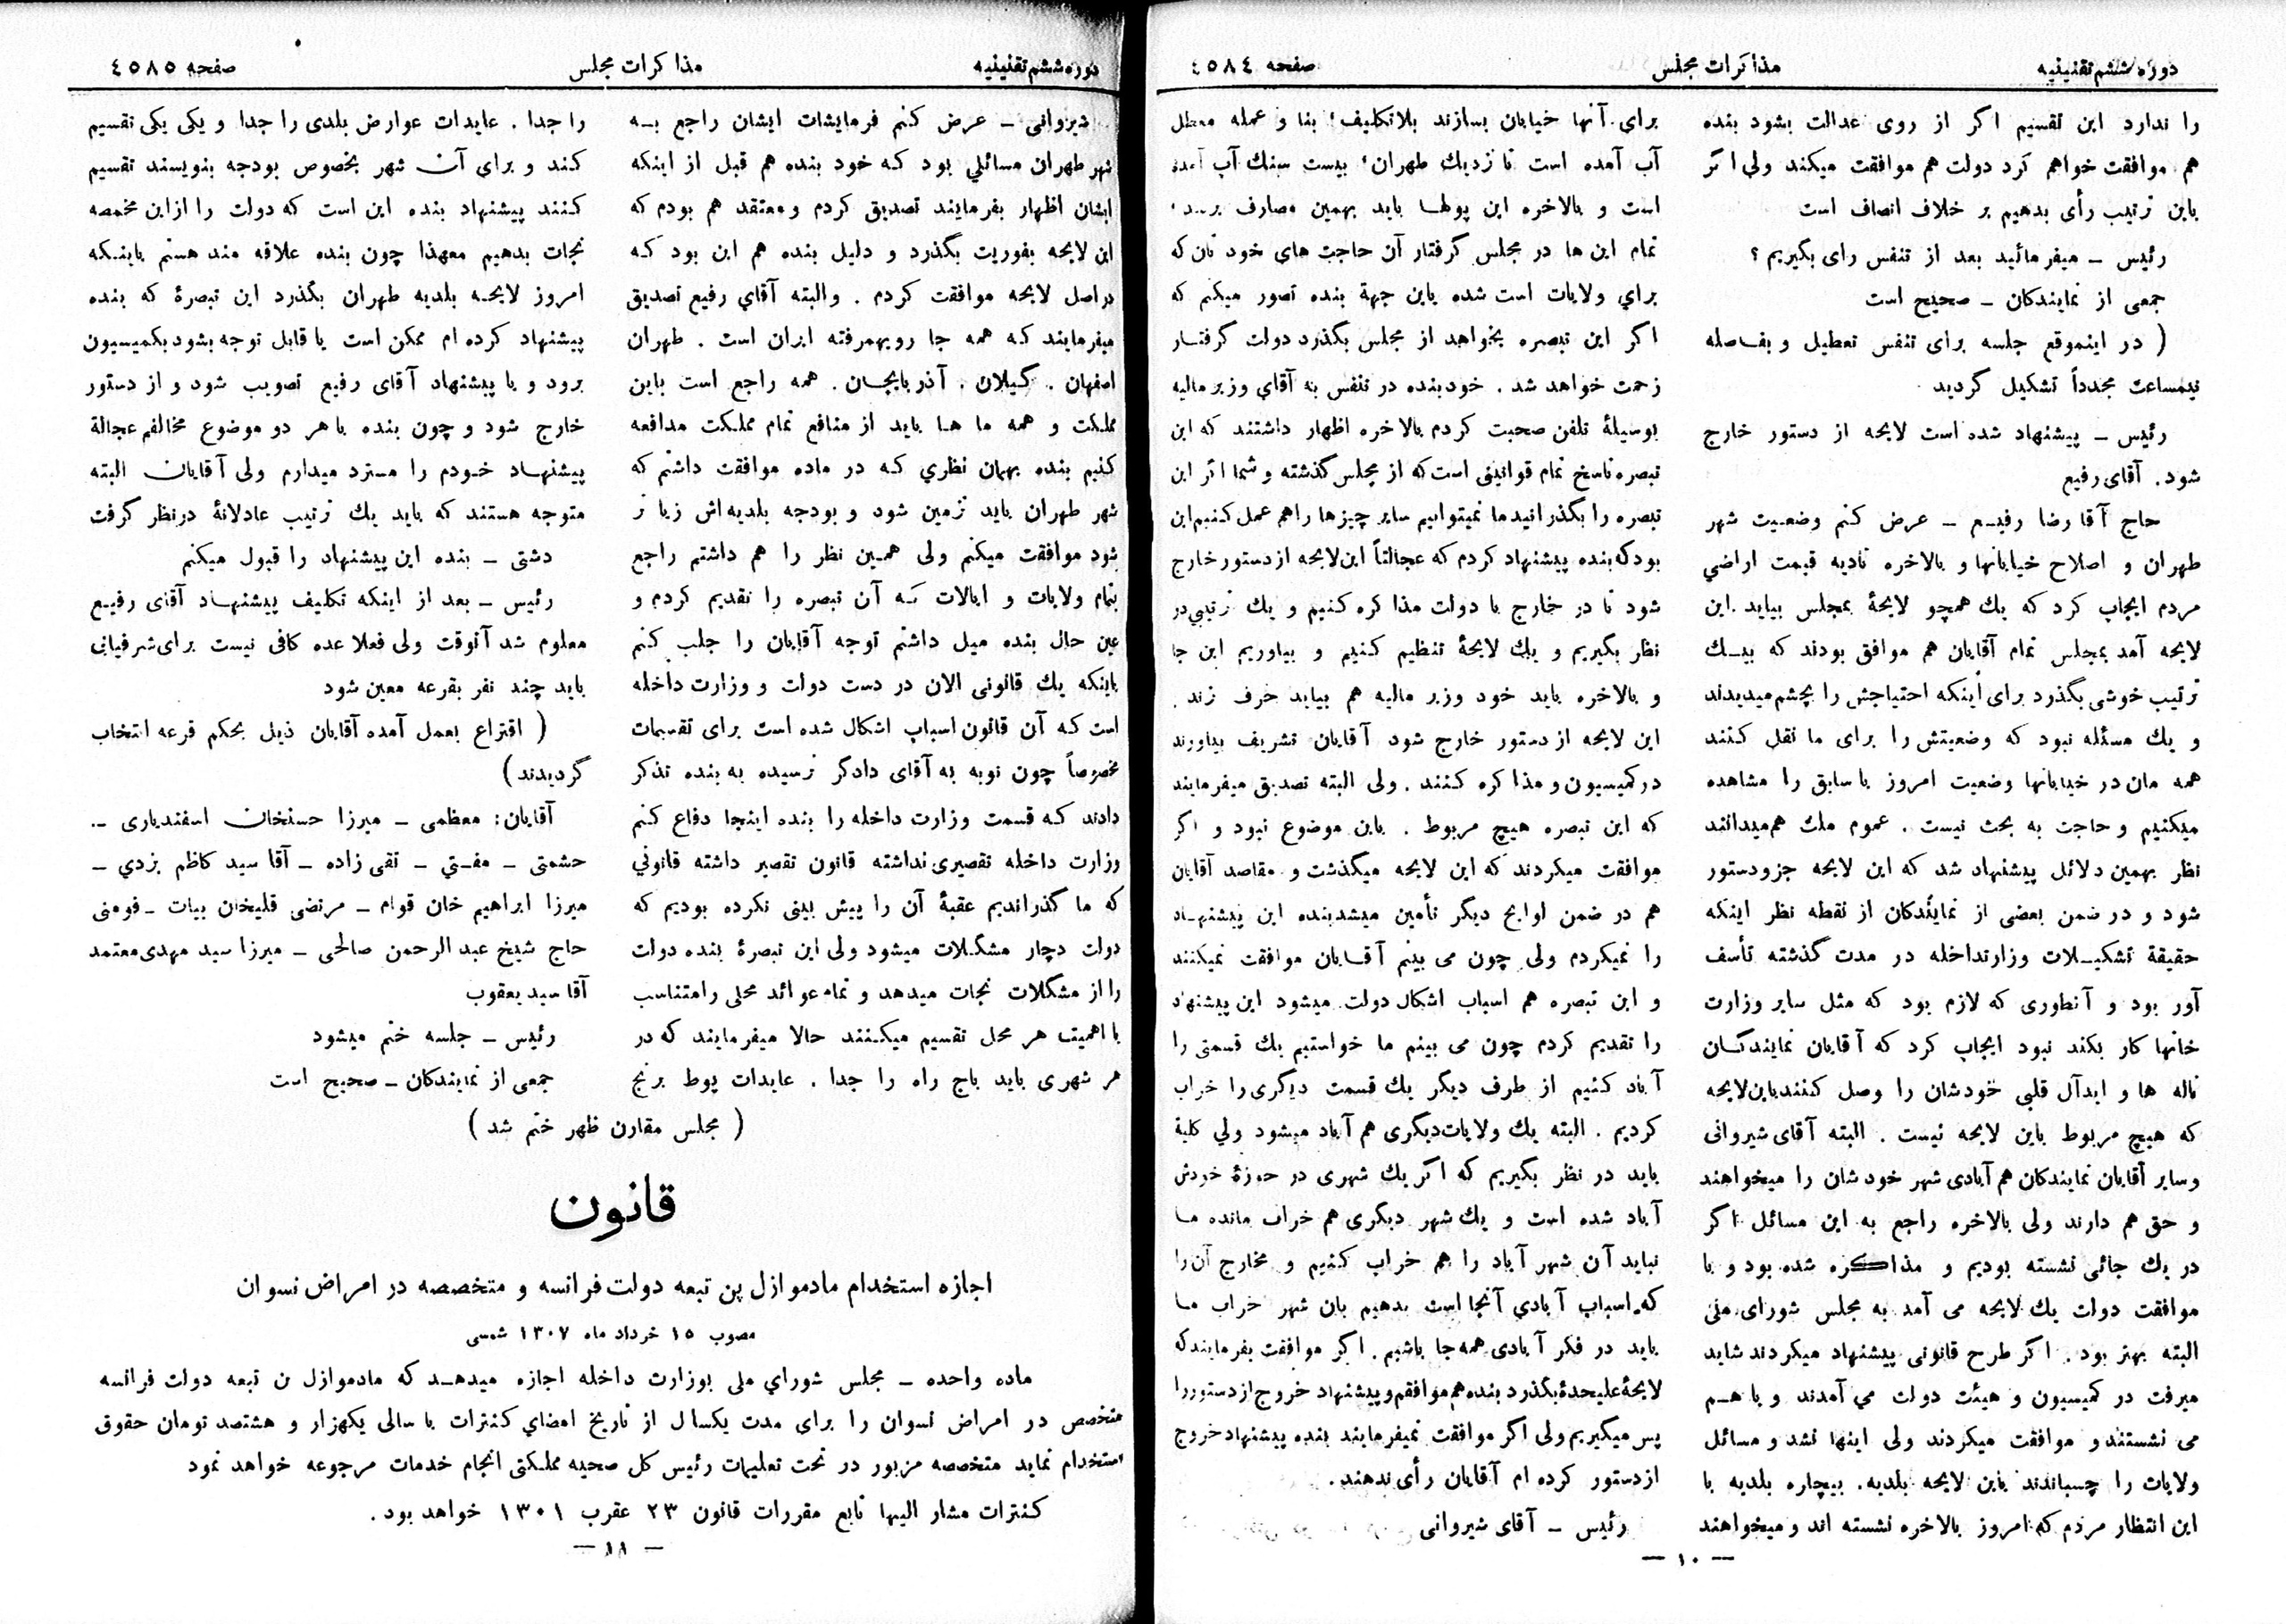 دوره ششم تقنینیه
مذاکرات مجلس
صفحه ٤٥٨٤
را ندارد این تقسیم اگر از روی عدالت بشود بنده
هم موافقت خواهم کرد دولت هم موافقت میکند ولی اگر
باین ترتیب رأی بدهیم بر خلاف انصاف است
رئیس ــ میفرمائید بعد از تنفس رای بگیریم ؟
جمعی از نمایندگان ــ صحیح است
( در اینموقع جلسه برای تنفس تعطیل و بفاصله
نیمساعت مجدداً تشکیل گردید
رئیس ــ پیشنهاد شده است لایحه از دستور خارج
شود . آقای رفیع
حاج آقا رضا رفیع ــ عرض کنم وضعیت شهر
طهران و اصلاح خیابانها و بالاخره تادیه قیمت اراضي
مردم ایجاب کرد که یك همچو لایحۀ بمجلس بیاید .این
لایحه آمد بمجلس تمام آقایان هم موافق بودند که بیـك
ترتیب خوشی بگذرد برای اینکه احتیاجش را بچشم میدیدند
و یك مسئله نبود که وضعیتش را برای ما نقل کنند
همه مان در خیابانها وضعیت امروز با سابق را مشاهده
میکنیم و حاجت به بحث نیست . عموم ملت هم میدانند
نظر بهمین دلائل پیشنهاد شد که این لایحه جزو دستور
شود و در ضمن بعضی از نمایندگان از نقطه نظر اینکه
حقیقة تشکیـلات وزارتداخله در مدت گذشته تأسف
آور بود و آنطوری که لازم بود که مثل سایر وزارت
خانها کار بکند نبود ایجاب کرد که آقایان نمایندگان
ناله ها و ایدآل قلبی خودشان را وصل کنند باین لایحه
که هیچ مربوط باین لایحه نیست . البته آقای شیروانی
و سایر آقایان نمایندکان هم آبادی شهر خودشان را میخواهند
و حق هم دارند ولی بالاخره راجع به این مسائل اگر
در یك جائی نشسته بودیم و مذاکره شده بود و با
موافقت دولت یك لایحه می آمد به مجلس شورای ملی
البته بهتر بود . اگر طرح قانونی پیشنهاد میکردند شاید
میرفت در کمیسیون و هیئت دولت می آمدند و با هـم
می نشستند و موافقت میکردند ولی اینها نشد و مسائل
ولایات را چسباندند باین لایحه بلدیه. بیچاره بلدیه با
این انتظار مردم که امروز بالاخره نشسته اند و میخواهند
برای آنها خیابان بسازند بلاتکلیف؛ بنا و عمله معطل
آب آمده است تا نزدیك طهران؛ بیست سنك آب آمده
است و بالاخره این پولها باید بهمین مصارف برسد؛
تمام این ها در مجلس گرفتار آن حاجت های خود تان که
براي ولایات است شده باین جهة بنده تصور میکنم که
اگر این تبصره بخواهد از مجلس بگذرد دولت گرفتـار
زحمت خواهد شد . خود بنده در تنفس به آقاي وزیر مالیه
بوسیلۀ تلفن صحبت کردم بالاخره اظهار داشتند که این
تبصره ناسخ تمام قوانینی است که از مجلس گذشته و شما اگر این
تبصره را بگذرانید ما نمیتوانیم سایر چیزها را هم عمل کنیم این
بود که بنده پیشنهاد کردم که عجالتاً این لایحه از دستور خارج
شود تا در خارج با دولت مذاکره کنیم و یك ترتیبي در
نظر بگیریم و یك لایحۀ تنظیم کنیم و بیاوریم این جا
و بالاخره باید خود وزیر مالیه هم بیاید حرف زند .
این لایحه از دستور خارج شود آقایان تشریف بیاورند
در کمیسیون و مذاکره کنند . ولی البته تصدیق میفرمایند
که این تبصره هیچ مربوط . باین موضوع نبود و اگر
موافقت میکردند که این لایحه میگذشت و مقاصد آقایان
هم در ضمن لوایح دیگر تأمین میشد بنده این پیشنهـاد
را نمیکردم ولی چون می بینم آقـایان موافقت نمیکنند
و این تبصره هم اسباب اشکال دولت میشود این پیشنهاد
را تقدیم کردم چون می بینم ما خواستیم یك قسمتی را
آباد کنیم از طرف دیگر یك قسمت دیگری را خراب
کردیم . البته یك ولایات دیگری هم آباد میشود ولي کلیة
باید در نظر بگیریم که اگر یك شهری در حوزۀ خودش
آباد شده است و یك شهر دیگری هم خراب مانده مـا
نباید آن شهر آباد را هم خراب کنیم و مخارج آن را
که اسباب آبادي آنجا است بدهیم بان شهر خراب مـا
باید در فکر آبادی همه جا باشیم . اگر موافقت بفرمایند که
لایحۀ علیحدۀ بگذرد بنده هم موافقم و پیشنهاد خروج از دستور را
پس میگیریم ولی اگر موافقت نمیفرمایند بنده پیشنهاد خروج
از دستور کرده ام آقایان رأی بدهند .
رئیس ــ آقای شیروانی
ــ ١٠ ــ
دوره ششم تقنینیه
مذاکرات مجلس
صفحه ٤٥٨٥
شیروانی ــ عرض کنم فرمایشات ایشان راجع بـه
شهر طهران مسائلي بود که خود بنده هم قبل از اینکه
ایشان اظهار بفرمایند تصدیق کردم و معتقد هم بودم که
این لایحه بفوریت بگذرد و دلیل بنده هم این بود کـه
در اصل لایحه موافقت کردم . والبته آقاي رفیع تصدیق
میفرمایند که همه جا رویهمرفته ایران است . طهران
اصفهان . گیلان . آذربایجان . همه راجع است باین
مملکت و همه ما هـا باید از منافع تمام مملکت مدافعه
کنیم بنده بهمان نظري که در ماده موافقت داشتم که
شهر طهران باید تزمین شود و بودجه بلدیه اش زیاتر
شود موافقت میکنم ولی همین نظر را هم داشتم راجع
بتمام ولایات و ایالات که آن تبصره را تقدیم کردم و
عین حال بنده میل داشتم توجه آقایان را جلب کنم
باینکه یك قانونی الان در دست دولت و وزارت داخله
است که آن قانون اسباب اشکال شده است برای تقسیمات
مخصوصاً چون نوبه به آقای دادگر نرسیده به بنده تذکر
دادند که قسمت وزارت داخله را بنده اینجا دفاع کنم
وزارت داخله تقصیری نداشته قانون تقصیر داشته قانوني
که ما گذراندیم عقبۀ آن را پیش بینی نکرده بودیم که
دولت دچار مشکلات میشود ولی این تبصرۀ بنده دولت
را از مشکلات نجات میدهد و تمام عوائد محلی را متناسب
با اهمیت هر محل تقسیم میکـنند حالا میفرمایند که در
هر شهری باید باج راه را جدا . عایدات پوط برنج
را جدا . عایدات عوارض بلدی را جدا و یکی یکی تقسیم
کند و برای آن شهر بخصوص بودجه بنویسند تقسیم
کنند پیشنهاد بنده این است که دولت را از این مخمصه
نجات بدهیم معهذا چون بنده علاقه مند هستم باینـکه
امروز لایحـه بلدیه طهران بگذرد این تبصرۀ که بنده
پیشنهاد کرده ام ممکن است یا قابل توجه بشود بکمیسیون
برود و یا پیشنهاد آقای رفیع تصویب شود و از دستور
خارج شود و چون بنده با هر دو موضوع مخالفم عجالة
پیشنهـاد خودم را مسترد میدارم ولی آقایان البته
متوجه هستند که باید یك ترتیب عادلانۀ در نظر گرفت
دشتی ــ بنده این پیشنهاد را قبول میکنم
رئیس ــ بعد از اینکه تکلیف پیشنهـاد آقای رفیـع
معلوم شد آنوقت ولی فعلا عده کافی نیست برای شرفیابی
باید چند نفر بقرعه معین شود
( اقتراع بعمل آمده آقایان ذیل بحکم قرعه انتخاب
گردیدند)
آقایان: معظمی ــ میرزا حسنخان اسفندیاری ــ
حشمتی ــ مفـتي ــ تقی زاده ــ آقا سید کاظم یزدي ــ
میرزا ابراهیم خان قوام ــ مرتضی قلیخان بیات ــ فومنی
حاج شیخ عبدالرحمن صالحی ــ میرزا سید مهدی معتمد
آقا سید یعقوب
رئیس ــ جلسه ختم میشود
جمعی از نمایندکان ــ صحیح است
( مجلس مقارن ظهر ختم شد )
قانون
اجازه استخدام مادموازل پن تبعه دولت فرانسه و متخصصه در امراض نسوان
مصوب ١٥ خرداد ماه ١٣٠٧ شمسی
ماده واحده ــ مجلس شورای ملی بوزارت داخله اجازه میدهـد که مادموازل ن تبعه دولت فرانسه
متخصص در امراض نسوان را برای مدت یکسال از تاریخ امضای کنترات با سالی یکهزار و هشتصد تومان حقوق
استخدام نماید متخصصه مزبور در تحت تعلیمات رئیس کل صحیه مملکتی انجام خدمات مرجوعه خواهد نمود
کنترات مشار الیها تابع مقررات قانون ٢٣ عقرب ١٣٠١ خواهد بود .
ــ ١١ ــ